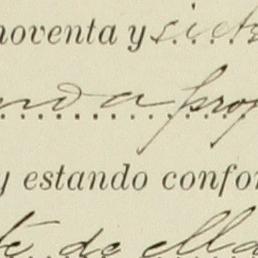 noventa y siete
nda prop
y estando confor
te de ella